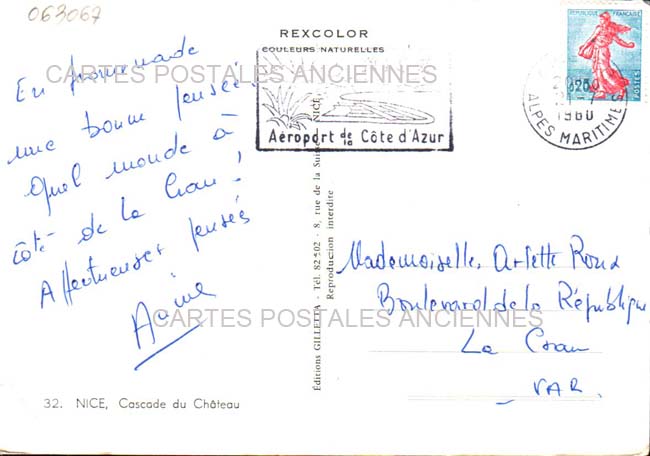 063067
REXCOLOR
COULEURS NATURELLES
RÉPUBLIQUE FRANÇAISE
POSTES
1960
ALPES MARITIMES
NICE
Aéroport de la Côte d'Azur
CARTES POSTALES ANCIENNES
En promenade
une bonne pensée.
Quel monde à
côté de la Crau !
Affectueuses pensées
Mademoiselle, Arlette Roux
Boulevard de la République
La Crau
VAR.
CARTES POSTALES ANCIENNES
Éditions GILLETTA - Tél. 82502 - 8, rue de la Suisse - NICE
Reproduction interdite
32. NICE, Cascade du Château